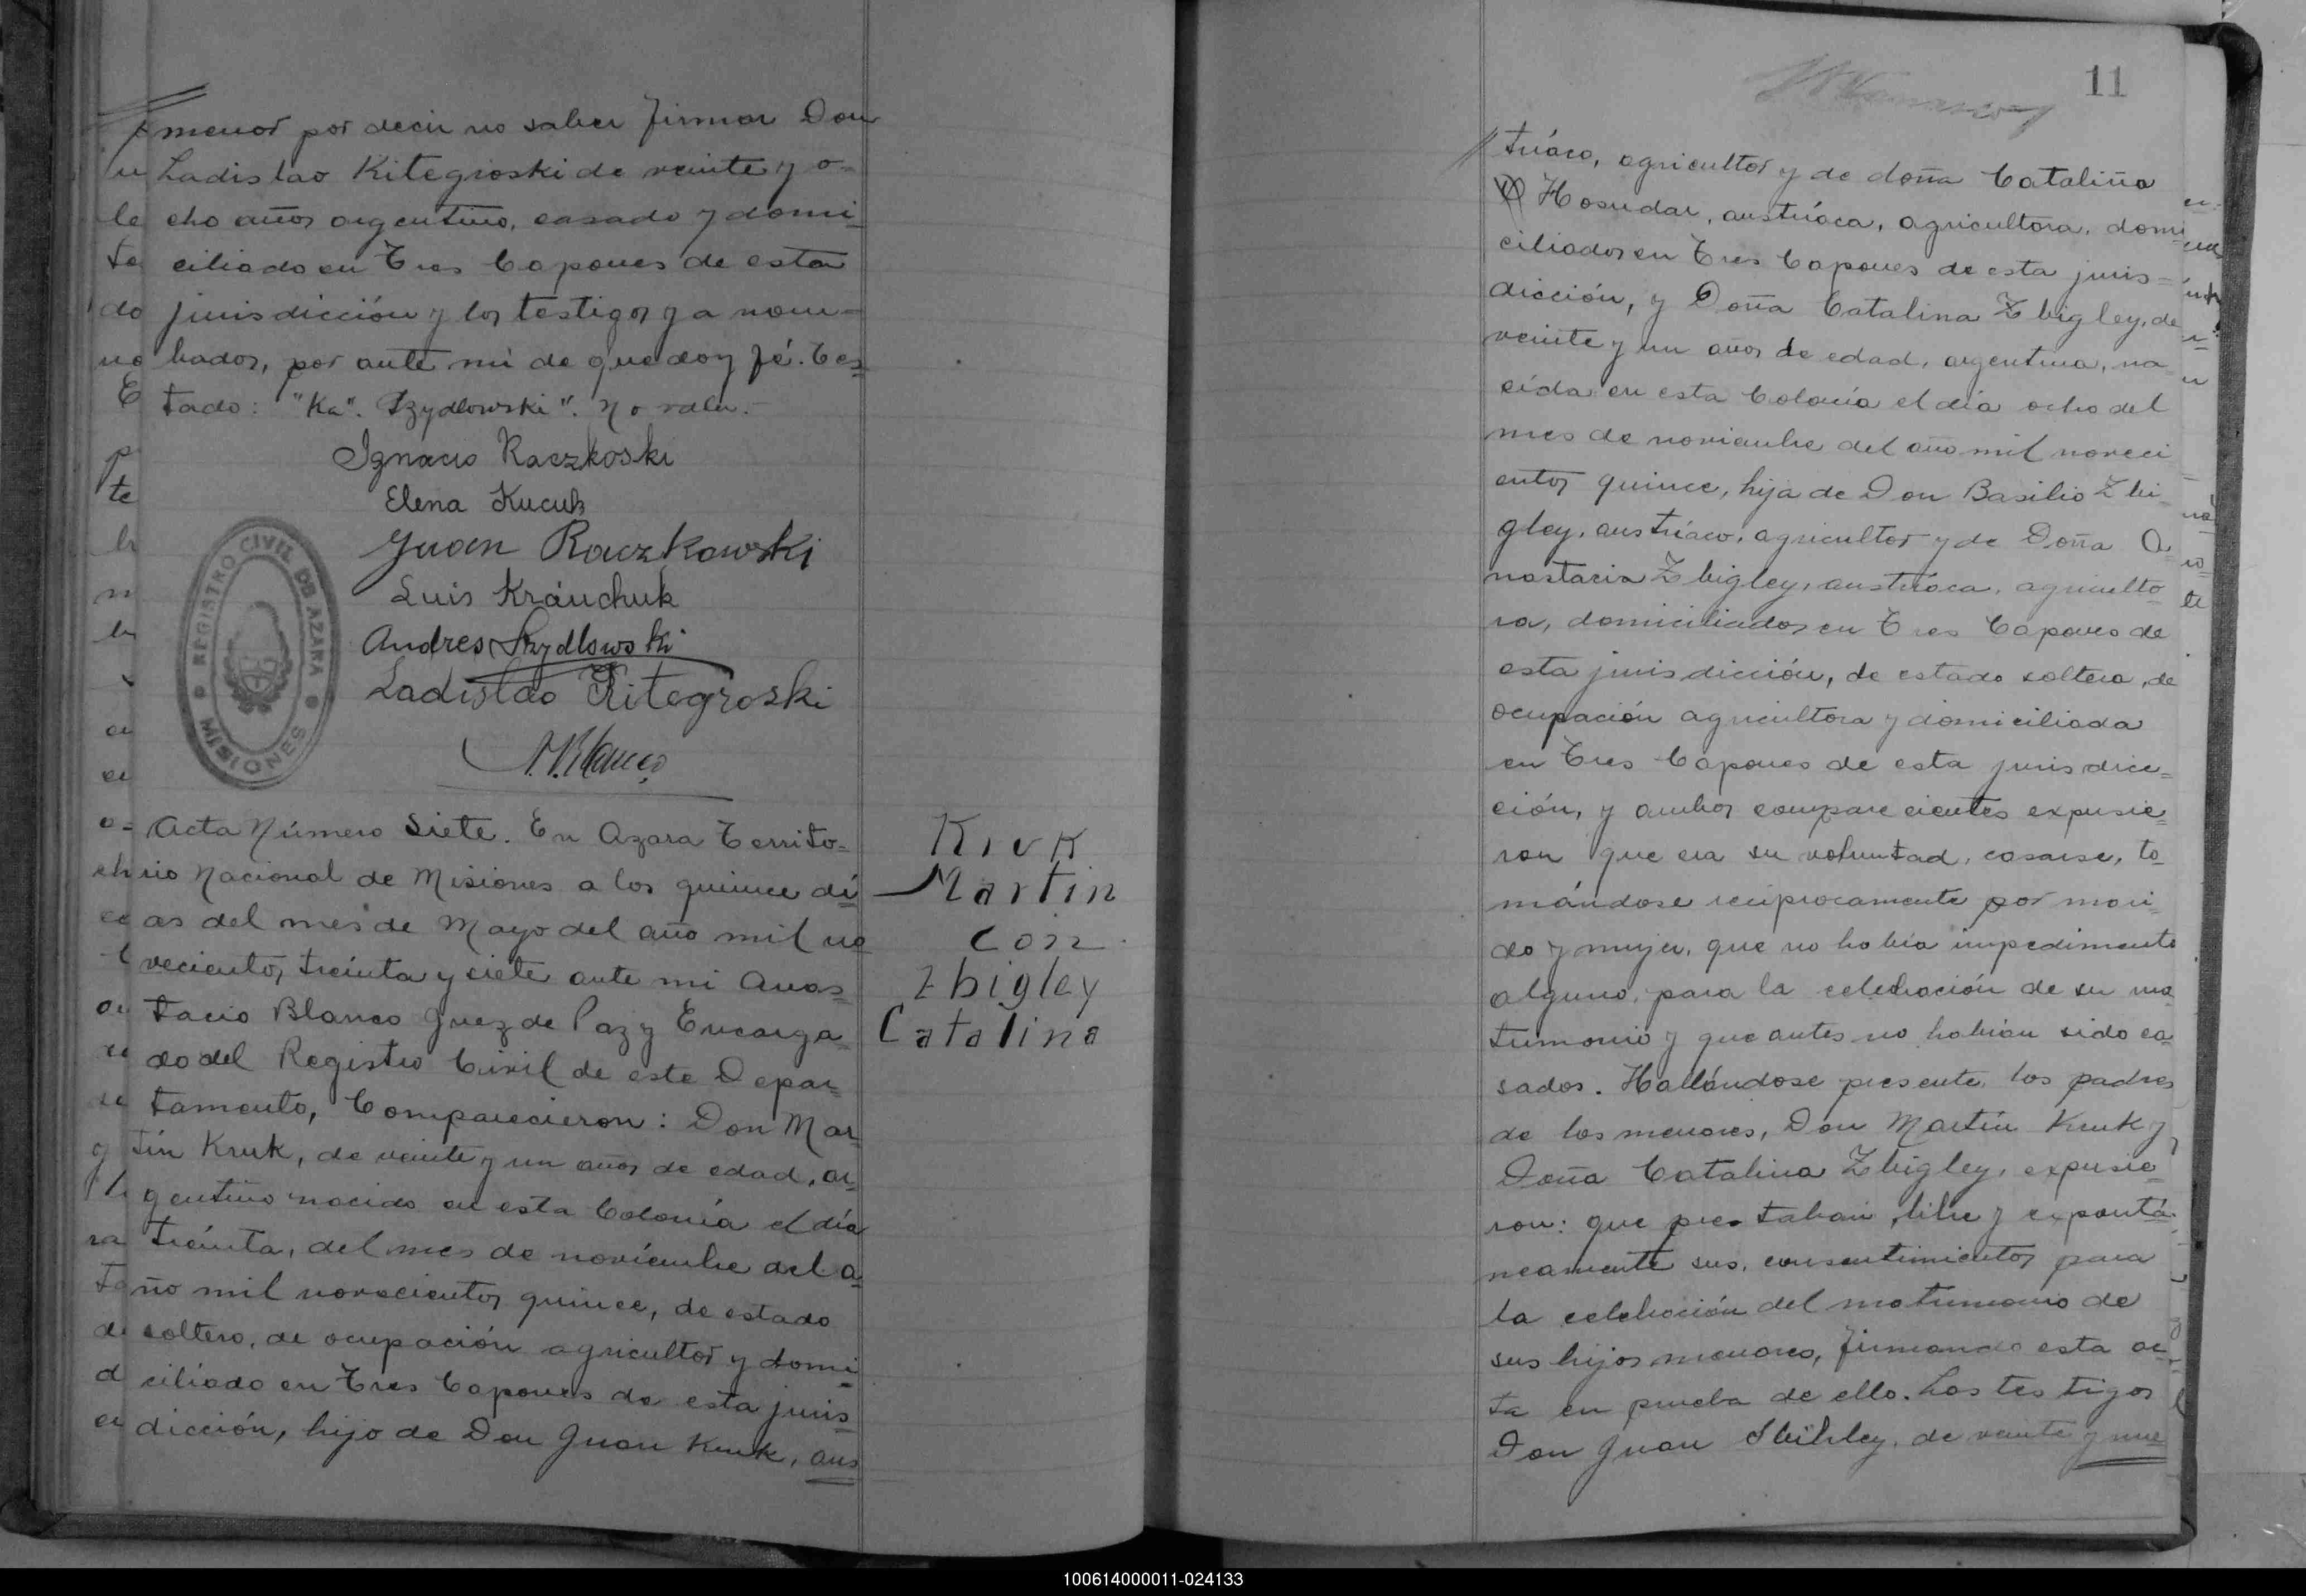 menor por decir no saber firmar Don
Ladislao Kitegroski de veinte y o=
cho años argentino, casado y domi=
ciliado en Tres Capones de esta
jurisdicción y los testigos ya nom=
brados, por ante mi de que doy fé. Tes=
tado: "Ka". Szydlowski". No valen.-
Ignacio Raczkoski
Elena Kucuk
Juan Raczkowski
Luis Kráuchuk
Andres Szydlowski
Ladislao Kitegroski
A. Blanco
REGISTRO CIVIL DE AZARA
MISIONES
Acta Número Siete. En Azara Territo=
rio Nacional de Misiones a los quince dí
as del mes de Mayo del año mil no
vecientos treinta y siete ante mi Anas=
tacio Blanco Juez de Paz y Encarga=
do del Registro Civil de este Depar=
tamento, Comparecieron: Don Mar=
tín Kruk, de veinte y un años de edad, ar=
gentino nacido en esta Colonia el día
treinta, del mes de noviembre del a=
ño mil novecientos quince, de estado
soltero, de ocupación agricultor y domi=
ciliado en Tres Capones de esta juris=
dicción, hijo de Don Juan Kruk, aus
Kruk
Martin
con
Zbigley
Catalina
11
tríaco, agricultor y de doña Cataliña
Hosudar, austríaca, agricultora, domi
ciliados en Tres Capones de esta juris=
dicción, y Doña Catalina Zbigley, de
veinte y un años de edad, argentina, na
cída en esta Colonia el día ocho del
mes de noviembre del año mil noveci
entos quince, hija de Don Basilio Zbi=
gley, austríaco, agricultor y de Doña A=
nastacia Zbigley, austríaca, agriculto
ra, domiciliados en Tres Capones de
esta jurisdicción, de estado soltera, de
ocupación agricultora y domiciliada
en Tres Capones de esta jurisdicc=
ción, y ambos comparecientes expusie=
ron que era su voluntad, casarse, to=
mándose recíprocamente por mari=
do y mujer, que no había impedimento
alguno, para la celebración de su ma
trimonio y que antes no habían sido ca=
sados. Hallándose presente, los padres
de los menores, Don Martín Kruk y
Doña Catalina Zbigley, expusie=
ron: que prestaban, libre y expontá=
neamente sus, consentimientos para
la celebración del matrimonio de
sus hijos menores, firmando esta ac=
ta en prueba de ello. Los testigos
Don Juan, de veinte y nue
100614000011-024133